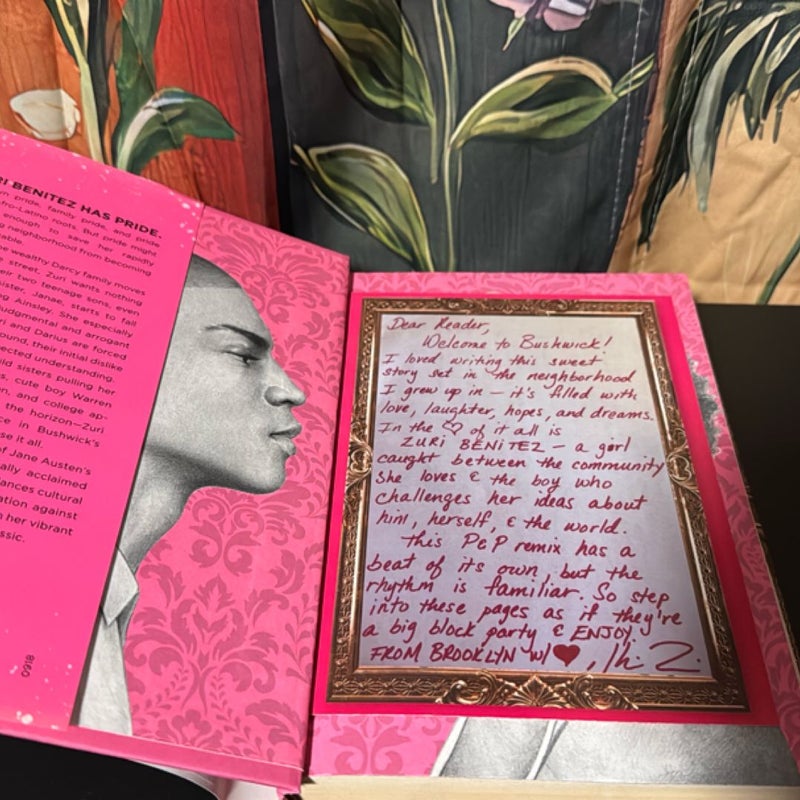 BENITEZ HAS PRIDE.
pride, family pride, and pride
Afro-Latino roots. But pride might
enough to save her rapidly
neighborhood from becoming
wealthy Darcy family moves
street, Zuri wants nothing
their two teenage sons, even
sister, Janae, starts to fall
Ainsley. She especially
judgmental and arrogant
and Darius are forced
their initial dislike
understanding.
sisters pulling her
cute boy Warren
and college ap-
the horizon—Zuri
in Bushwick's
it all.
of Jane Austen's
acclaimed
cultural
against
her vibrant
0918
Dear Reader,
Welcome to Bushwick!
I loved writing this sweet
story set in the neighborhood
I grew up in — it's filled with
love, laughter, hopes, and dreams.
In the ♡ of it all is
ZURI BENITEZ — a girl
caught between the community
she loves & the boy who
challenges her ideas about
him, herself, & the world.
This P&P remix has a
beat of its own, but the
rhythm is familiar. So step
into these pages as if they're
a big block party & ENJOY.
FROM BROOKLYN w/ ♥,